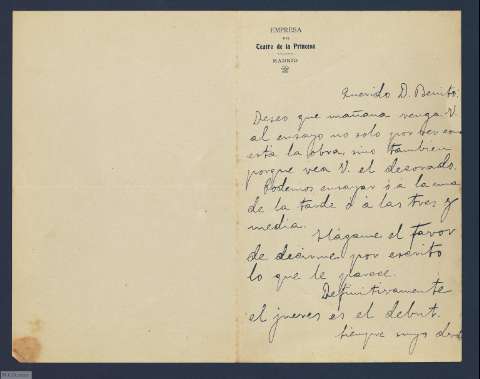 EMPRESA
DEL
Teatro de la Princesa
MADRID
Querido D. Benito:
Deseo que mañana venga V.
al ensayo no solo por ver como
está la obra, sino tambien
porque vea V. el decorado.
Podemos ensayar ó a la una
de la tarde ó á las tres y
media.
Hágame el favor
de decirme por escrito
lo que le parece.
Definitivamente
el jueves es el debut.
Siempre suyo